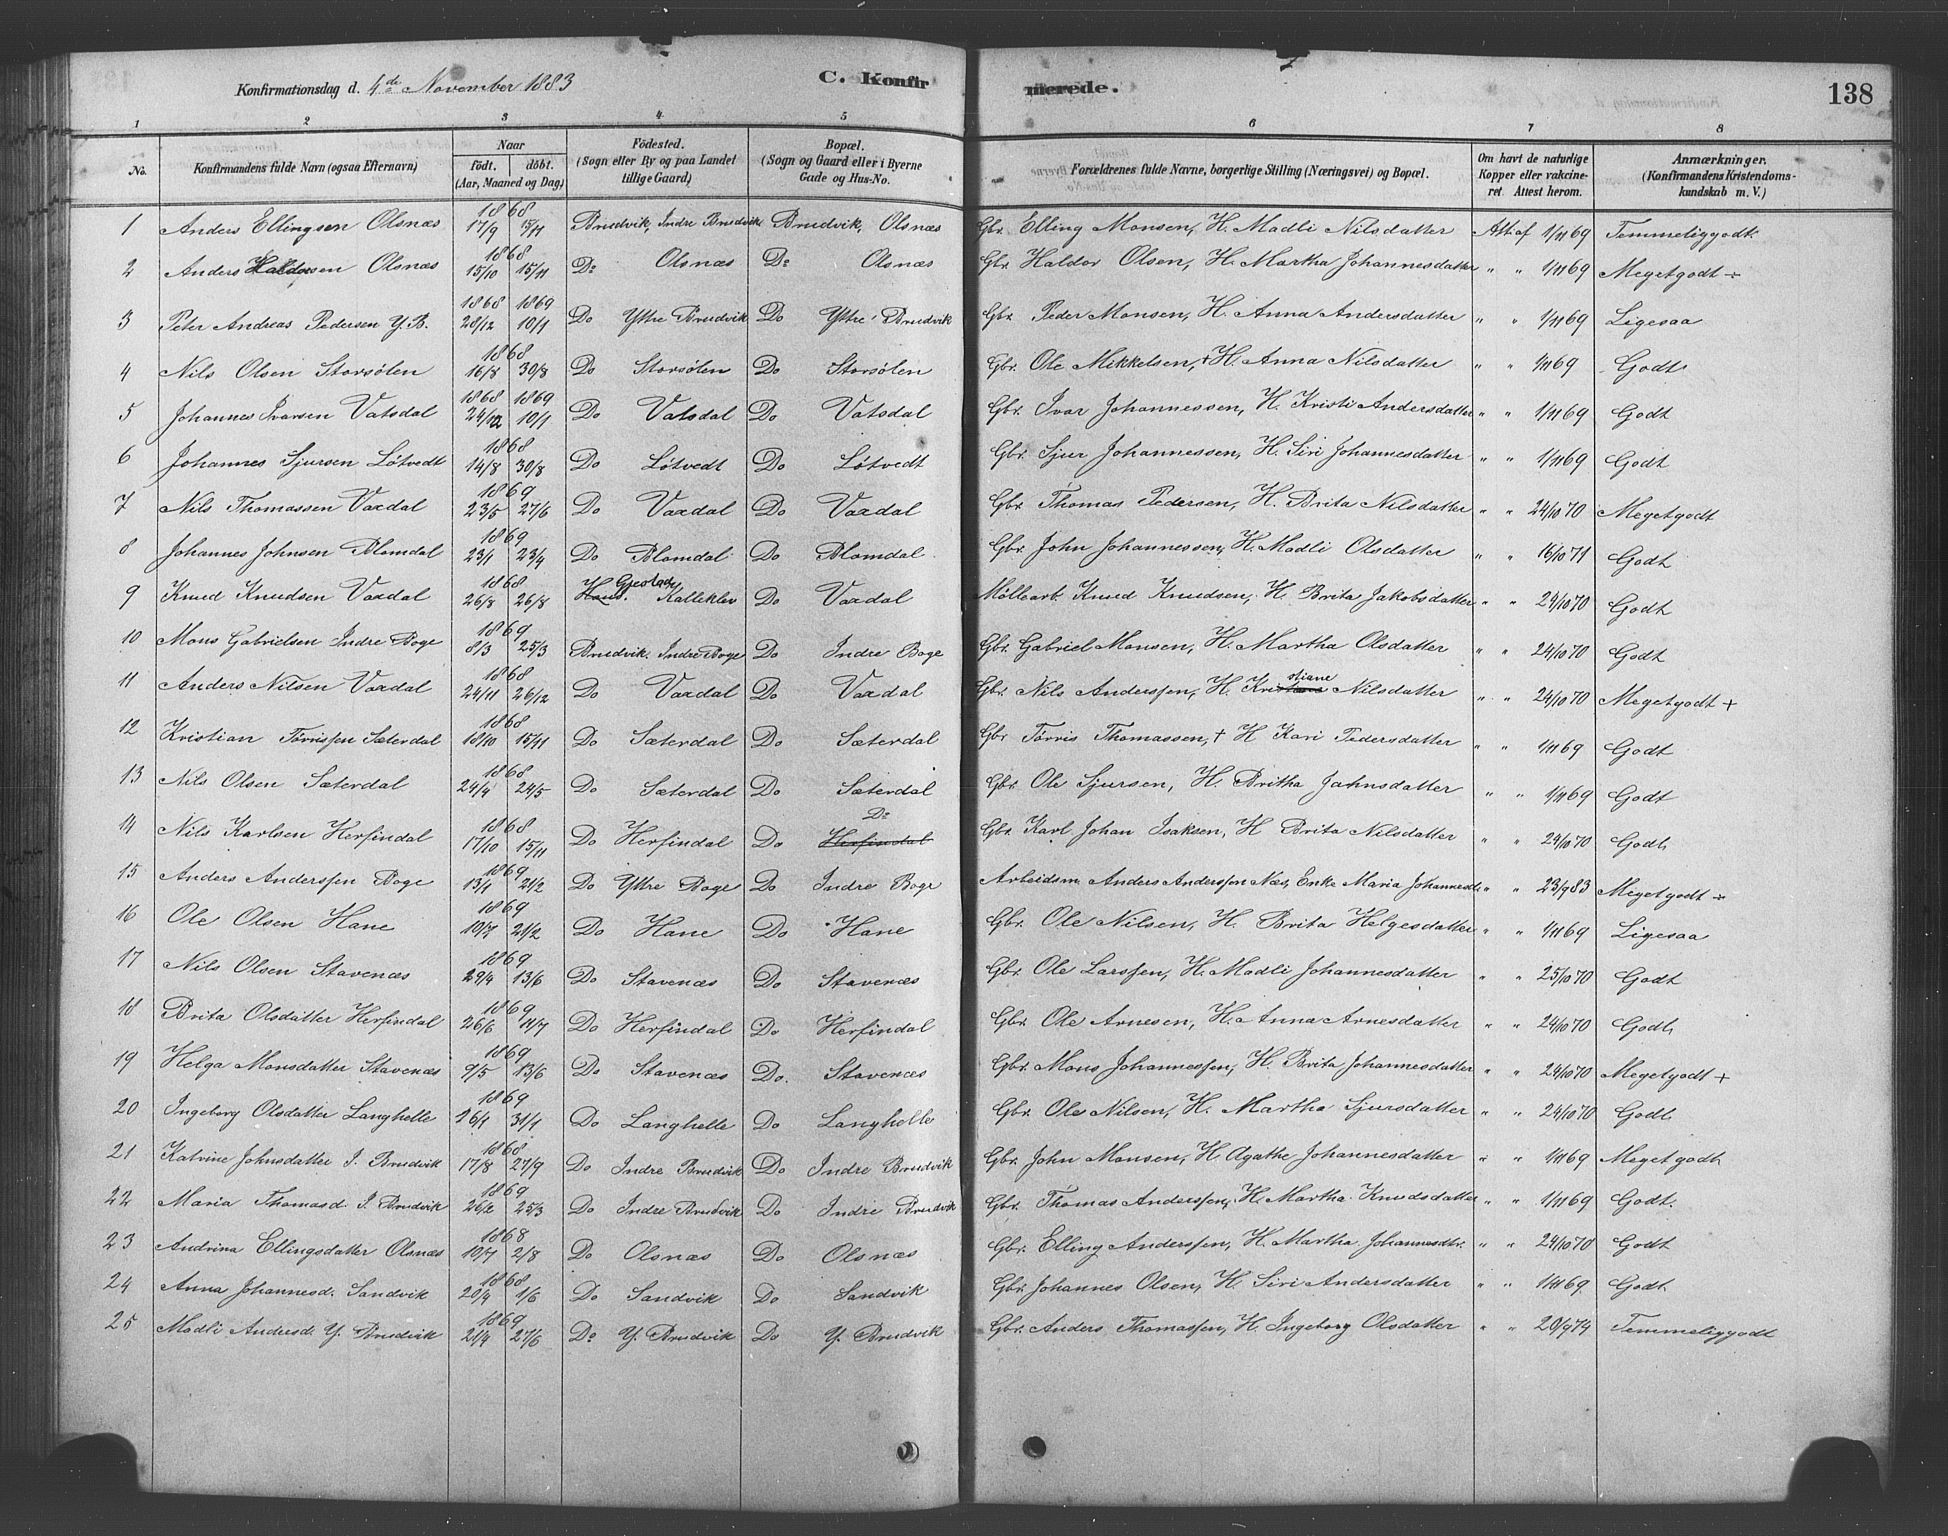 Konfirmationsdag d. 4de November 1883 C. Konfirmerede. 138
1 2 3 4 5 6 7 8
No. Konfirmandens fulde Navn (ogsaa Efternavn) Naar födt. döbt. (Aar, Maaned og Dag) Födested. (Sogn eller By og paa Landet tillige Gaard.) Bopæl. (Sogn og Gaard eller i Byerne Gade og Hus-No. Forældrenes fulde Navne, borgerlige Stilling (Næringsvei) og Bopæl. Om havt de naturlige Kopper eller vakcineret. Attest herom. Anmærkninger. (Konfirmandens Kristendomskundskab m. V.)
1 Anders Ellingsen Olsnæs 1868 17/9 15/11 Brudvik, Indre Brudvik Brudvik, Olsnæs Gbr. Elling Monsen, H. Madli Nilsdatter Att. af 1/11 69 Temmeliggodt.
2 Anders Haldorsen Olsnæs 1868 15/10 15/11 Do Olsnæs Do Olsnæs Gbr. Haldor Olsen, H. Martha Johannesdatter " " 1/11 69 Megetgodt +
3 Peter Andreas Pedersen Y. B. 1868 1869 28/12 10/1 Do Yttre Brudvik Do Yttre Brudvik Gbr. Peder Monsen, H. Anna Andersdatter " " 1/11 69 Ligesaa
4 Nils Olsen Storsölen 1868 16/8 30/8 Do Storsölen Do Storsölen Gbr. Ole Mikkelsen, + H. Anna Nilsdatter " " 1/11 69 Godt
5 Johannes Ivarsen Vatsdal 1868 1869 24/12 10/1 Do Vatsdal Do Vatsdal Gbr. Ivar Johannessen, H. Kristi Andersdatter " " 1/11 69 Godt
6 Johannes Sjursen Lötvedt 1868 14/8 30/8 Do Lötvedt Do Lötvedt Gbr. Sjur Johannessen, H. Siri Johannesdatter " " 1/11 69 Godt
7 Nils Thomassen Vaxdal 1869 23/5 27/6 Do Vaxdal Do Vaxdal Gbr. Thomas Pedersen, H. Brita Nilsdatter " " 24/10 70 Megetgodt
8 Johannes Johnsen Blomdal 1869 23/1 23/4 Do Blomdal Do Blomdal Gbr. John Johannessen, H. Madli Olsdatter " " 16/10 71 Godt
9 Knud Knudsen Vaxdal 1868 26/8 26/8 Kalleklev Do Vaxdal Möllearb. Knud Knudsen, H. Brita Jakobsdatter " " 24/10 70 Godt
10 Mons Gabrielsen Indre Boge 1869 8/3 25/3 Brudvik. Indre Boge Do Indre Boge Gbr. Gabriel Monsen, H. Martha Olsdatter " " 24/10 70 Godt
11 Anders Nilsen Vaxdal 1868 24/11 26/12 Do Vaxdal Do Vaxdal Gbr. Nils Anderssen, H. Kristiane Nilsdatter " " 24/10 70 Megetgodt +
12 Kristian Törrissen Sæterdal 1868 18/10 15/11 Do Sæterdal Do Sæterdal Gbr. Törris Thomassen, + H Kari Pedersdatter " " 1/11 69 Godt
13 Nils Olsen Sæterdal 1868 24/4 24/5 Do Sæterdal Do Sæterdal Gbr. Ole Sjursen, H. Britha Jahnsdatter " " 1/11 69 Godt
14 Nils Karlsen Herfindal 1868 17/10 15/11 Do Herfindal Do Herfindal Do Gbr. Karl Johan Isaksen, H Brita Nilsdatter " " 24/10 70 Godt.
15 Anders Anderssen Boge 1869 13/1 21/2 Do Yttre Boge Do Indre Boge Arbeidsm. Anders Anderssen Næs, Enke Maria Johannesd. " " 23/9 83 Megetgodt +
16 Ole Olsen Hane 1869 10/7 21/2 Do Hane Do Hane Gbr. Ole Nilsen, H. Brita Helgesdatter " " 1/11 69 Ligesaa
17 Nils Olsen Stavenæs 1869 29/4 13/6 Do Stavenæs Do Stavenæs Gbr. Ole Larssen, H. Madli Johannesdatter " " 25/10 70 Godt
18 Brita Olsdatter Herfindal 1869 26/6 11/7 Do Herfindal Do Herfindal Gbr. Ole Arnesen, H. Anna Arnesdatter " " 24/10 70 Godt.
19 Helga Monsdatter Stavenæs 1869 9/5 13/6 Do Stavenæs Do. Stavenæs Gbr. Mons Johannessen, H. Brita Johannesdatter " " 24/10 70 Megetgodt +
20 Ingeborg Olsdatter Langhelle 1869 26/1 31/1 Do Langhelle Do Langhelle Gbr. Ole Nilsen, H. Martha Sjursdatter " " 24/10 70 Godt.
21 Katrine Johnsdatter I. Brudvik 1868 17/8 27/9 Do Indre Brudvik Do Indre Brudvik Gbr. John Monsen, H. Agathe Johannesdatter " " 1/11 69 Megetgodt
22 Maria Thomasd. I. Brudvik 1869 26/2 25/3 Do Indre Brudvik Do Indre Brudvik Gbr. Thomas Anderssen, H. Martha Knudsdatter " " 1/11 69 Godt.
23 Andrina Ellingsdatter Olsnæs 1868 10/7 2/8 Do Olsnæs Do Olsnæs Gbr. Elling Anderssen, H. Martha Johannesdtr. " " 24/10 70 Godt
24 Anna Johannesd. Sandvik 1868 20/4 1/6 Do Sandvik Do Sandvik Gbr. Johannes Olsen, H. Siri Andersdatter " " 1/11 69. Godt
25 Madli Andersd. Y. Brudvik 1869 21/4 27/6 Do Y. Brudvik Do Y. Brudvik Gbr. Anders Thomassen, H. Ingeborg Olsdatter " " 20/9 74 Temmeliggodt